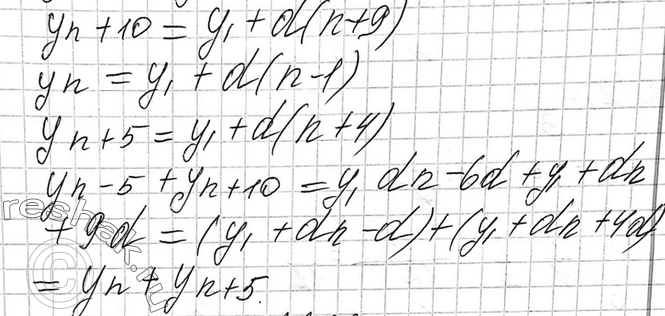 yn+10 = y₁ + d(n+9)
yn = y₁ + d(n-1)
yn+5 = y₁ + d(n+4)
yn-5 + yn+10 = y₁ dn - 6d + y₁ + dn
+ 9d = (y₁ + dn - d) + (y₁ + dn + 4d)
= yn + yn+5.